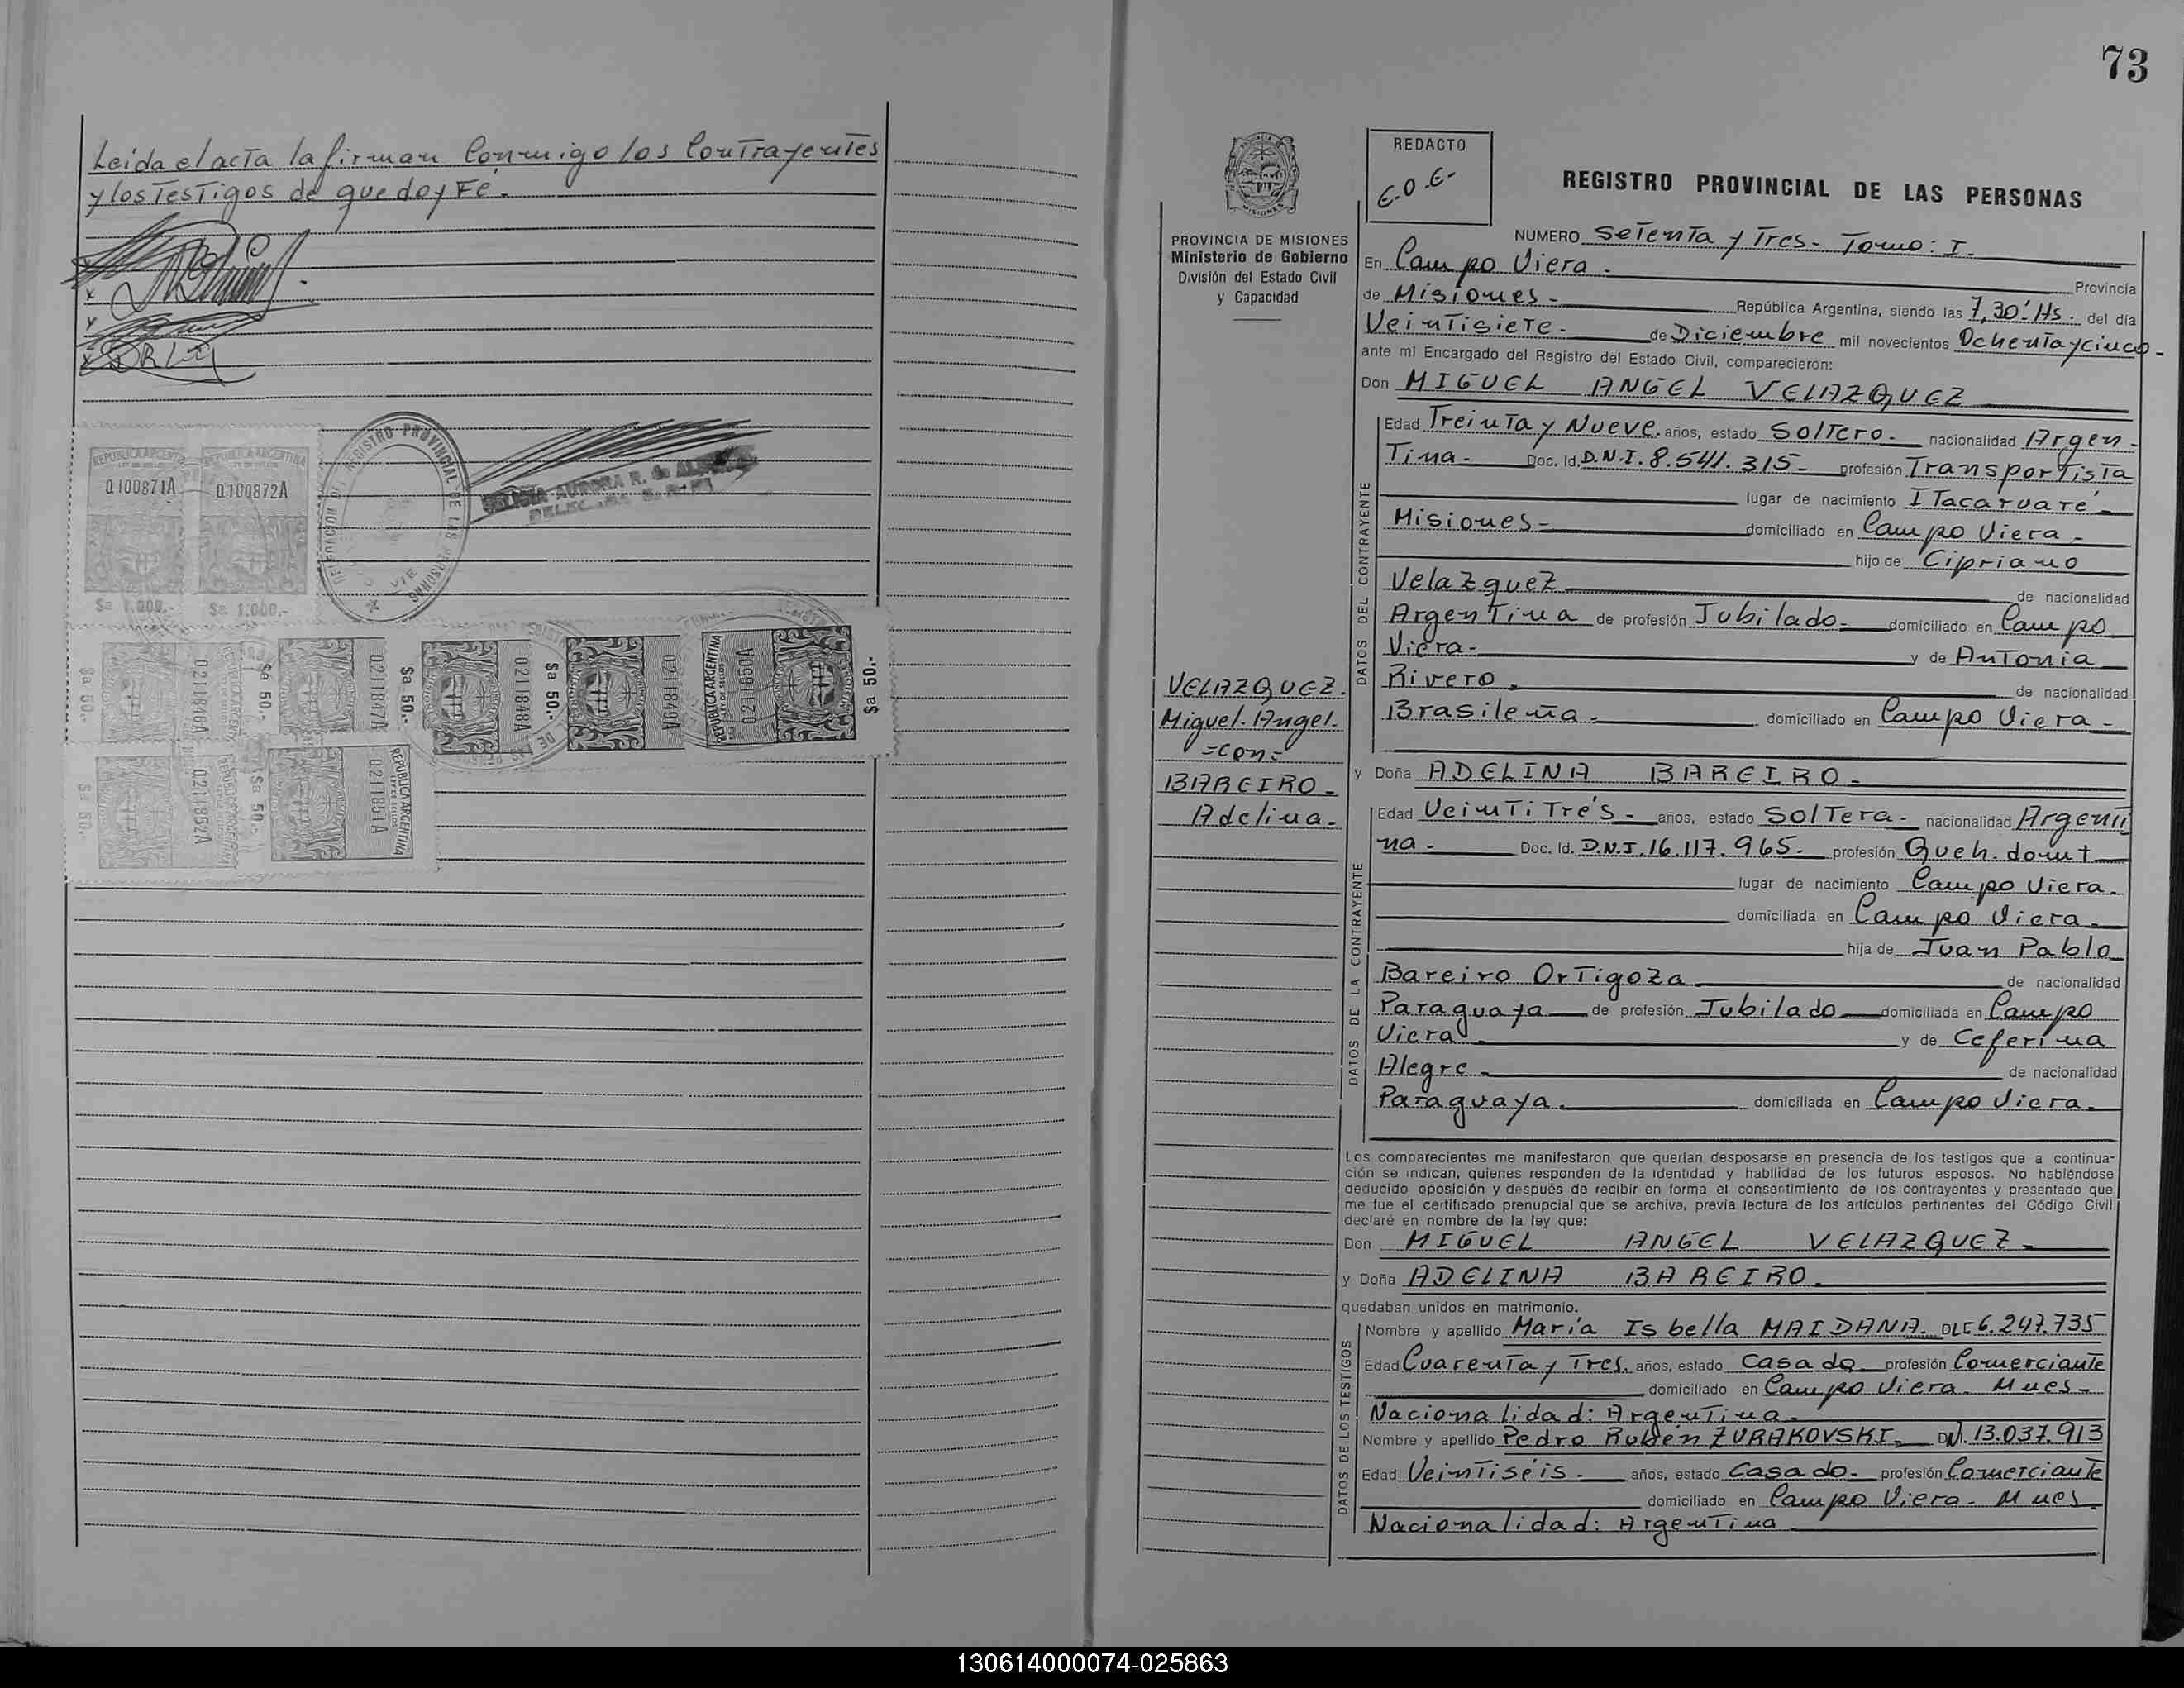 Leida el acta la firman Conmigo los Contrayentes
y los Testigos de que doy Fé.-
DELEGACION DEL REGISTRO PROVINCIAL DE LAS PERSONAS
FELICIA AURORA R. de
REPUBLICA ARGENTINA
Q100871A
$a 1.000.-
REPUBLICA ARGENTINA
Q100872A
$a 1.000.-
0211846A
$a 50.-
0211847A
$a 50.-
0211848A
$a 50.-
0211849A
REPUBLICA ARGENTINA
0211850A
$a 50.-
0211852A
$a 50.-
REPUBLICA ARGENTINA
0211851A
73
PROVINCIA DE MISIONES
Ministerio de Gobierno
División del Estado Civil
y Capacidad
VELAZQUEZ.
Miguel-Angel-
=con=
BAREIRO-
Adelina-
REDACTO
E.O.E-
REGISTRO PROVINCIAL DE LAS PERSONAS
NUMERO Setenta y Tres- Tomo: I.
En Campo Viera- Provincia
de Misiones- República Argentina, siendo las 7,30' Hs. del día
Veintisiete- de Diciembre mil novecientos Ochenta y cinco-
ante mi Encargado del Registro del Estado Civil, comparecieron:
Don MIGUEL ANGEL VELAZQUEZ
DATOS DEL CONTRAYENTE
Edad Treinta y Nueve. años, estado Soltero- nacionalidad Argen-
Tina- Doc. Id. D.N.I. 8.541.315- profesión Transportista
lugar de nacimiento ITacaruaré-
Misiones- domiciliado en Campo Viera-
hijo de Cipriano
Velazquez de nacionalidad
Argentina de profesión Jubilado- domiciliado en Campo
Viera- y de Antonia
Rivero- de nacionalidad
Brasileña- domiciliado en Campo Viera-
y Doña ADELINA BAREIRO-
DATOS DE LA CONTRAYENTE
Edad Veintitrés- años, estado Soltera- nacionalidad Argenti
na- Doc. Id. D.N.I. 16.117.965- profesión Queh. domt
lugar de nacimiento Campo Viera-
domiciliada en Campo Viera-
hija de Juan Pablo
Bareiro Ortigoza de nacionalidad
Paraguaya de profesión Jubilado domiciliada en Campo
Viera- y de Ceferina
Alegre- de nacionalidad
Paraguaya- domiciliada en Campo Viera-
Los comparecientes me manifestaron que querían desposarse en presencia de los testigos que a continua-
ción se indican, quienes responden de la identidad y habilidad de los futuros esposos. No habiéndose
deducido oposición y después de recibir en forma el consentimiento de los contrayentes y presentado que
me fue el certificado prenupcial que se archiva, previa lectura de los artículos pertinentes del Código Civil
declaré en nombre de la ley que:
Don MIGUEL ANGEL VELAZQUEZ-
y Doña ADELINA BAREIRO-
quedaban unidos en matrimonio.
DATOS DE LOS TESTIGOS
Nombre y apellido María Isbella MAIDANA- DLC 6.247.735
Edad Cuarenta y Tres. años, estado Casada profesión Comerciante
domiciliado en Campo Viera- Mnes-
Nacionalidad: Argentina-
Nombre y apellido Pedro Rubén ZURAKOVSKI- DNI. 13.037.913
Edad Veintiséis- años, estado Casado- profesión Comerciante
domiciliado en Campo Viera- Mnes.
Nacionalidad: Argentina
130614000074-025863